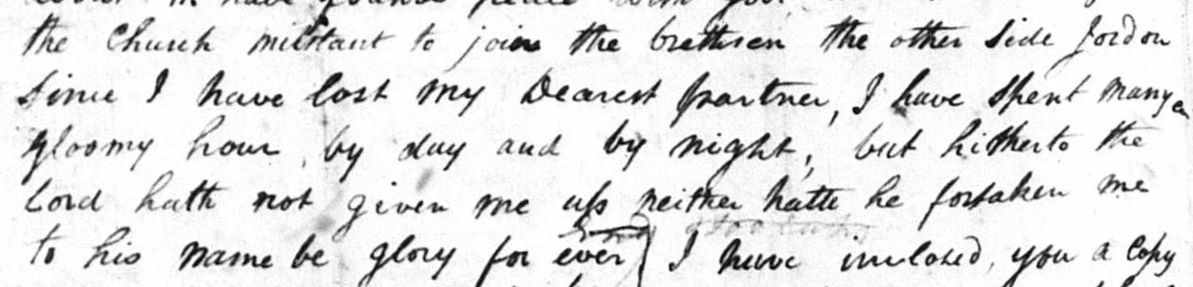 the Church militant to join the brethren the other side Jordon
Since I have lost my Dearest partner, I have spent many a
gloomy hour, by day and by night, but hitherto the
Lord hath not given me up neither hath he forsaken me
to his name be glory for ever I have inclosed, you a Copy